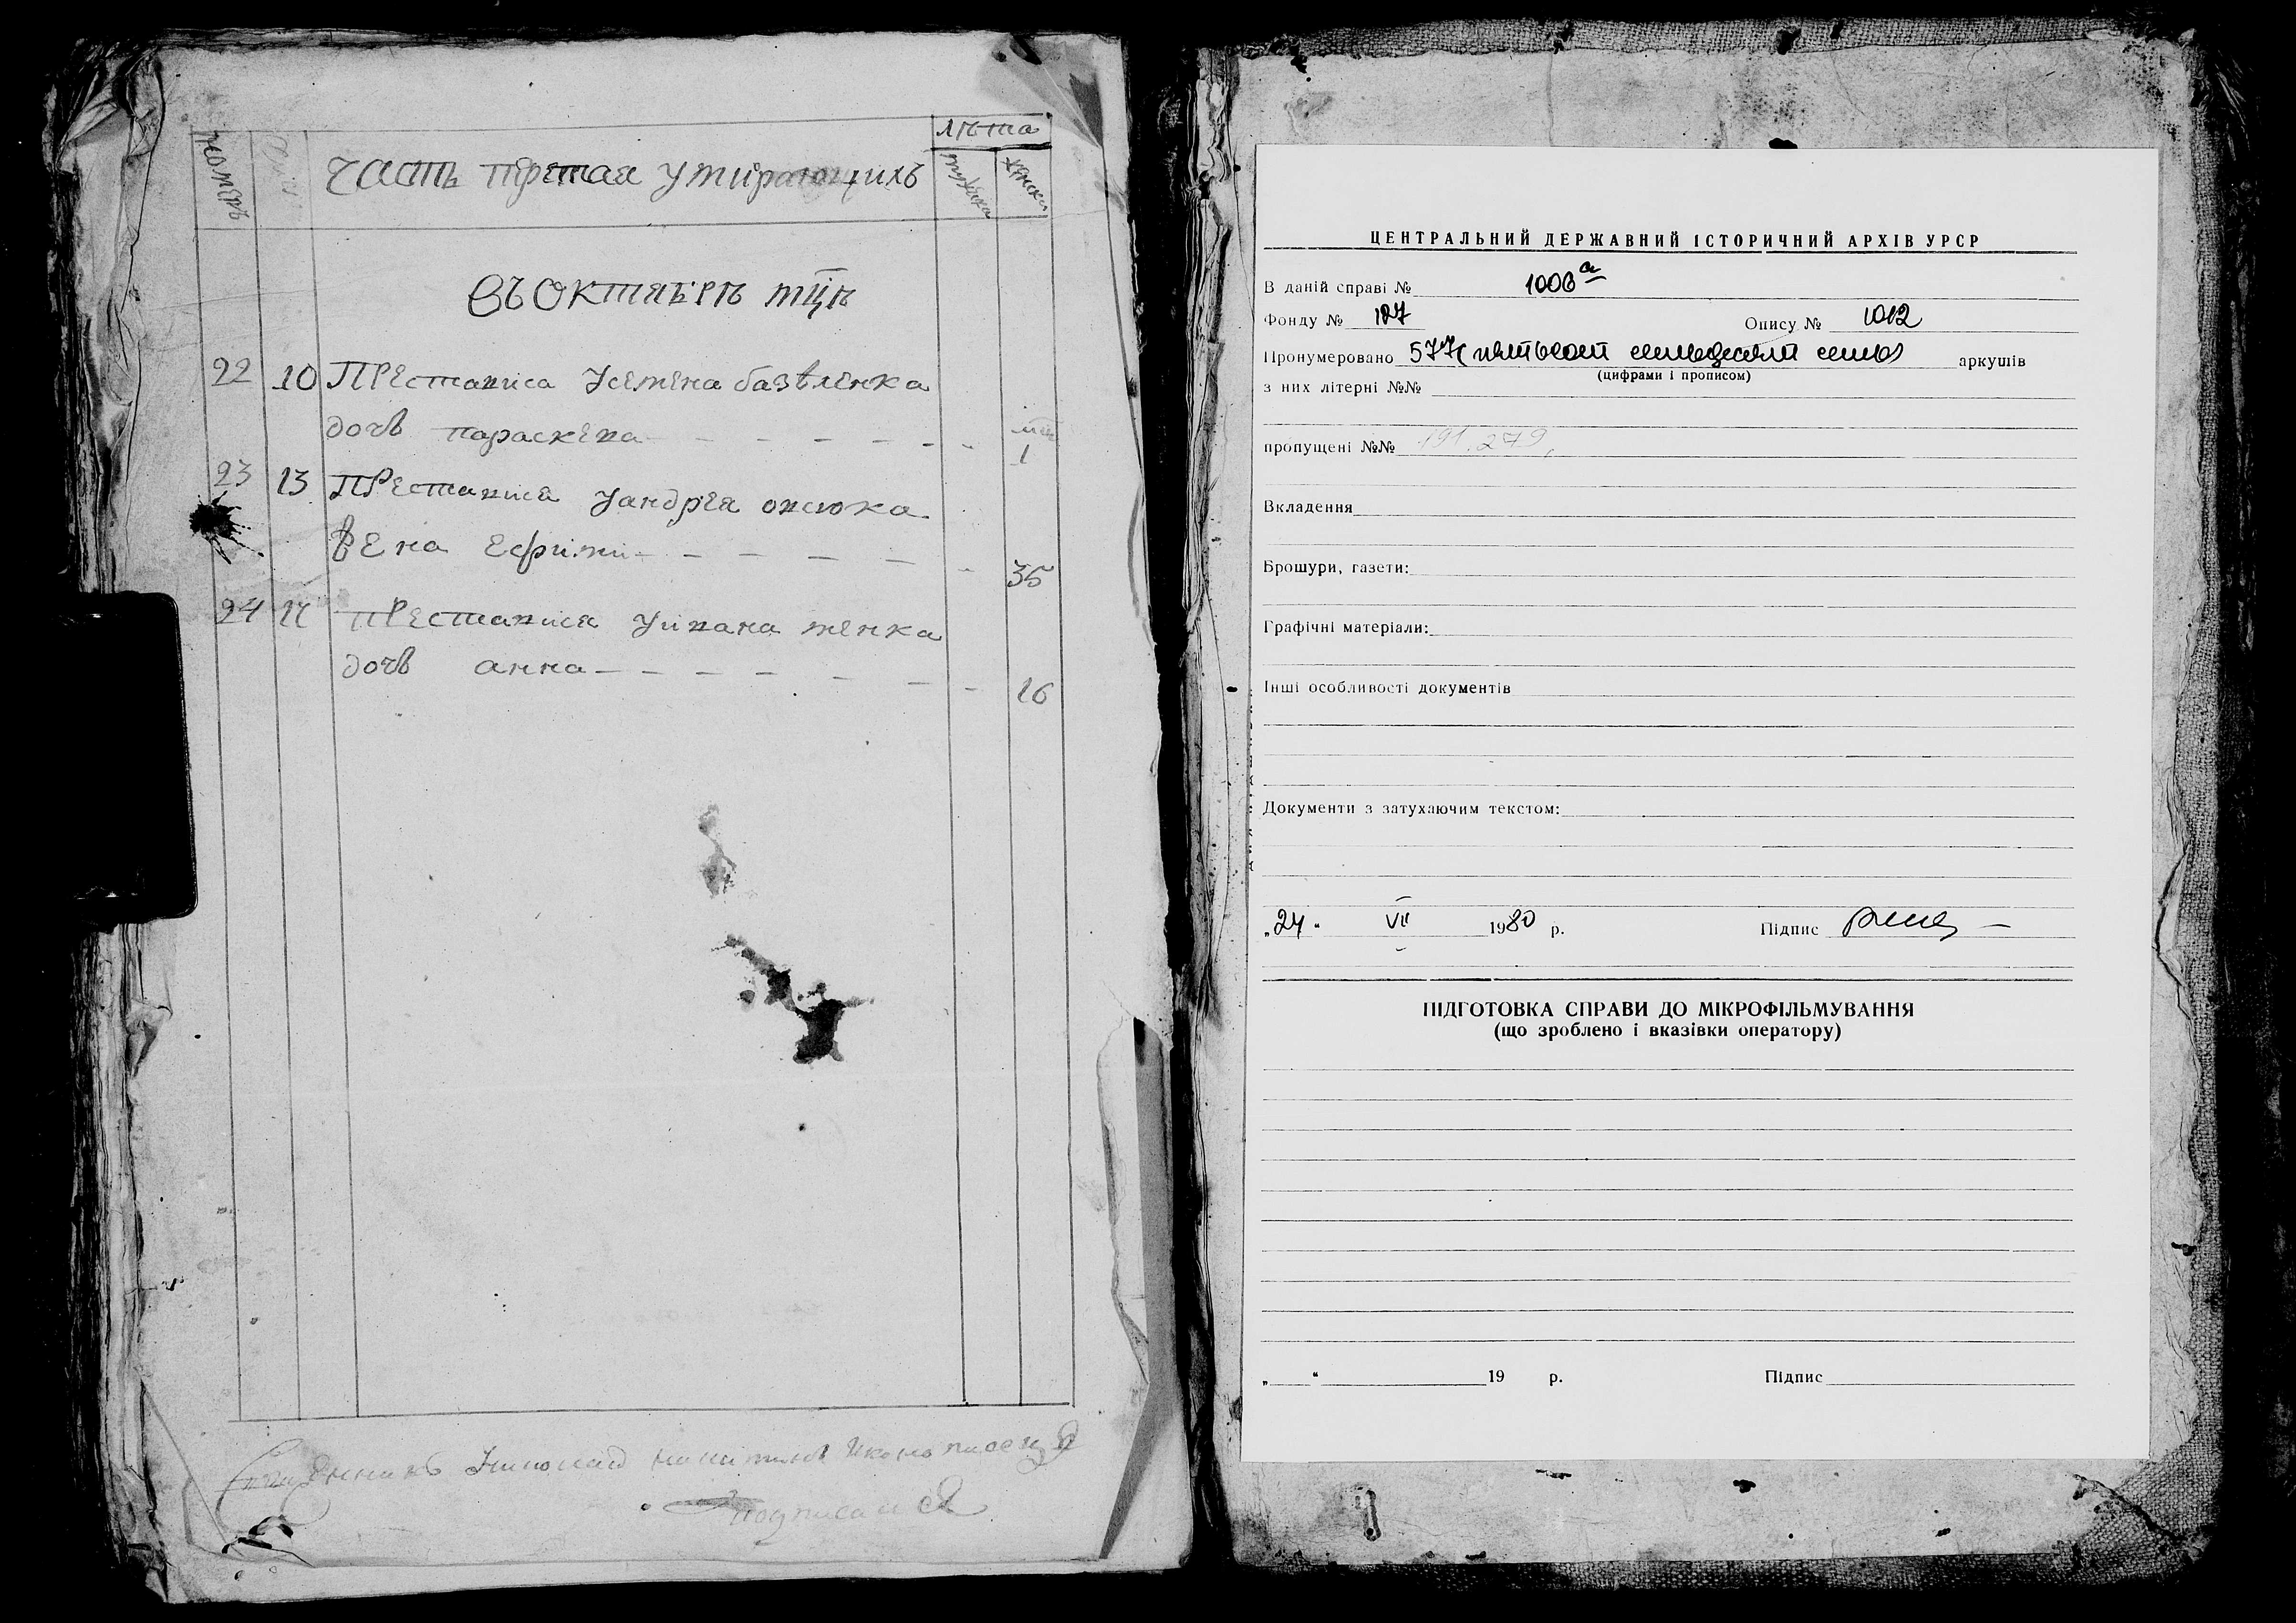 номеръ
лѣта
мужска
женска
часть третая умирающихъ
въ октябрѣ мцѣ
22 10 Преставися у семена
дочь параскева
1
23 13 Преставися у андрея
жена
35
24 Преставися у ивана
дочь анна
16
Николай иконописец
подписался
ЦЕНТРАЛЬНИЙ ДЕРЖАВНИЙ ІСТОРИЧНИЙ АРХІВ УРСР
В даній справі № 1006а
Фонду № 127 Опису № 1012
Пронумеровано 577 (пятьсот семьдесят семь) аркушів
(цифрами і прописом)
з них літерні №№
пропущені №№ 191, 279,
Вкладення
Брошури, газети:
Графічні матеріали:
Інші особливості документів
Документи з затухаючим текстом:
„24“ VII 1980 р. Підпис
ПІДГОТОВКА СПРАВИ ДО МІКРОФІЛЬМУВАННЯ
(що зроблено і вказівки оператору)
„ “ 19 р. Підпис